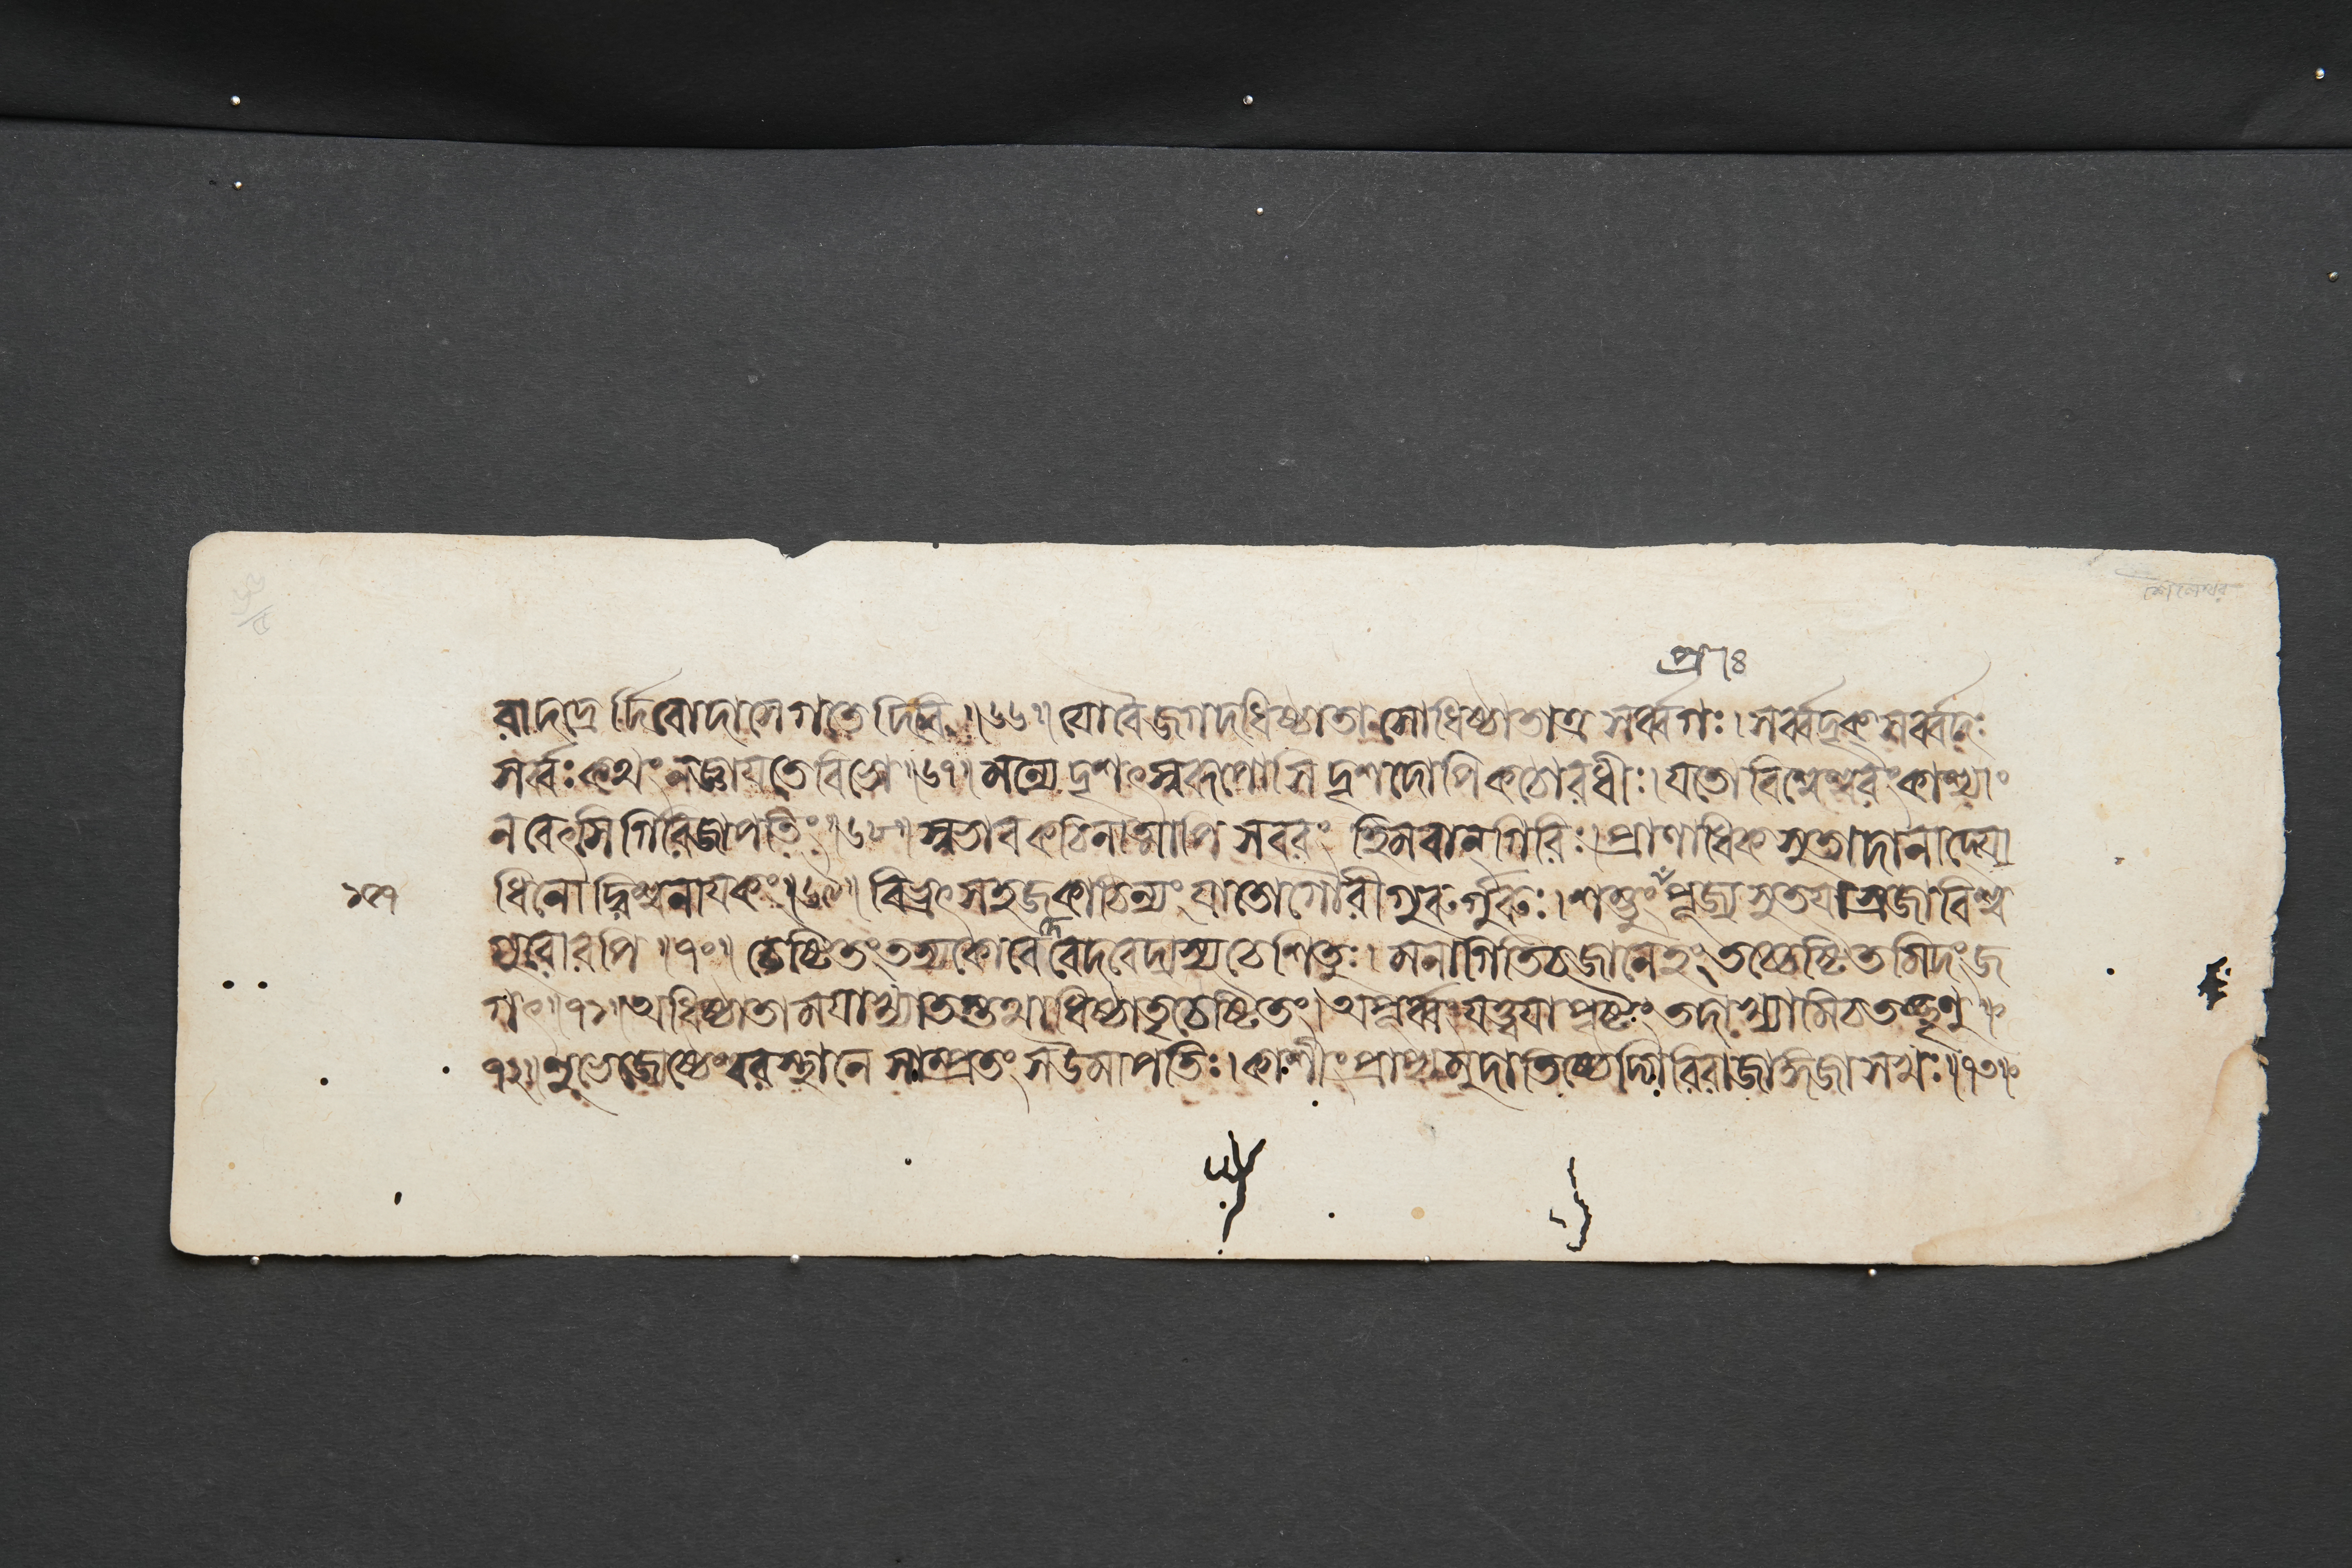 শৈলেশ্বর
ৰাদদ্রে র্দিবোদাসে গতে দিবি ॥৬৬॥ যো বৈ জগদধিষ্ঠাতা সোধিষ্ঠাতাত্র সর্ব্বগঃ । সর্ব্বদৃক্ সর্ব্বদঃ
সর্ব্বঃ কথং ন জ্ঞায়তে বিভো ॥৬৭॥ মন্যে দৃশৎস্বরূপোসি দৃশদোপি কঠোরধীঃ । যতো বিশ্বেশ্বরং কাশ্যাং
ন বেৎসি গিরিজাপতিং ॥৬৮॥ স্বভাবকঠিনাত্মাপি স বরং হিমবান্গিরিঃ । প্রাণাধিকসুতাদানাদ্যো
ধিনোদ্বিশ্বনায়কং ॥৬৯॥ বিভ্রৎ সহজকাঠিন্যং যাতো গৌরীগুরুর্গুরুঃ । শম্ভুং প্রপূজ্য সুতয়া স্রজা বিশ্ব
গুরোরপি ॥৭০॥ চেষ্টিতং তস্য কো বেদ বেদবেদ্যস্য চেশিতুঃ । মনাগিতি চ জানেহং তচ্চেষ্টিতমিদং জ
গৎ ॥৭১॥ অধিষ্ঠাতা ময়াখ্যাতস্তথাধিষ্ঠাতৃচেষ্টিতং । অপূর্ব্বং যত্ত্বয়া পৃষ্টং তদাখ্যামি চ তচ্ছৃণু ॥
৭২॥ শুভে জ্যেষ্ঠেশ্বরস্থানে সাম্প্রতং স উমাপতিঃ । কাশীং প্রাপ্য মুদা তিষ্ঠেদ্গিরিরাজাঙ্গজাসখঃ ॥৭৩॥